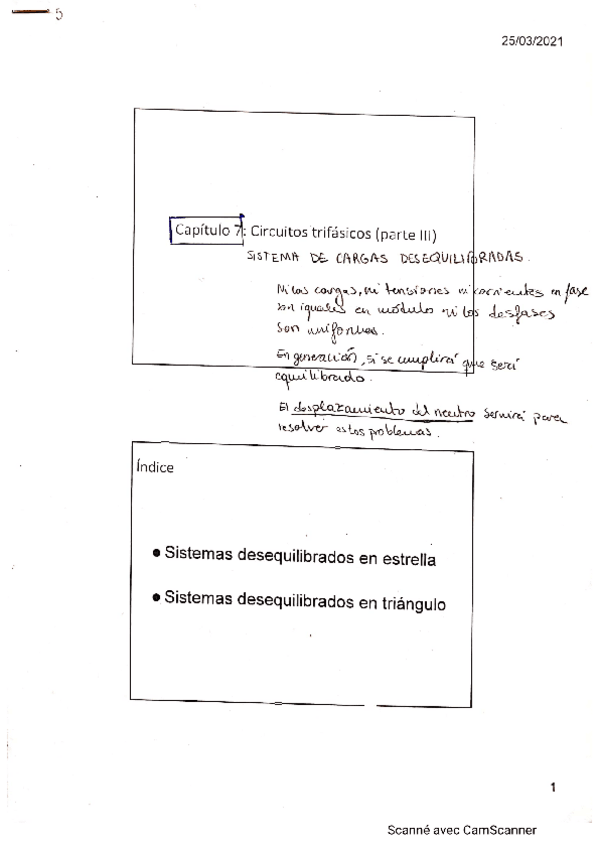 5
25/03/2021
Capítulo 7: Circuitos trifásicos (parte III)
SISTEMA DE CARGAS DESEQUILIBRADAS.
Ni las cargas, ni tensiones ni corrientes en fase
son iguales en módulo ni los desfases
son uniformes.
En generación, si se cumplirá que será
equilibrado.
El desplazamiento del neutro servirá para
resolver estos problemas.
Índice
● Sistemas desequilibrados en estrella
● Sistemas desequilibrados en triángulo
1
Scanné avec CamScanner